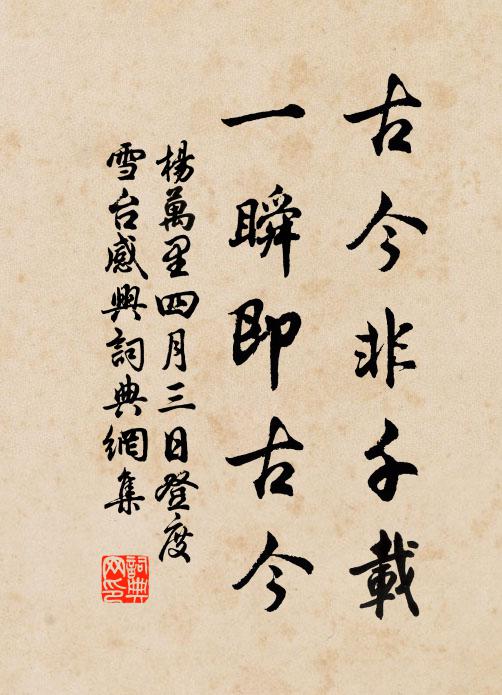 古今非千載
一瞬即古今
楊萬里四月三日登度
雪台感興詞典網集
詞典網印